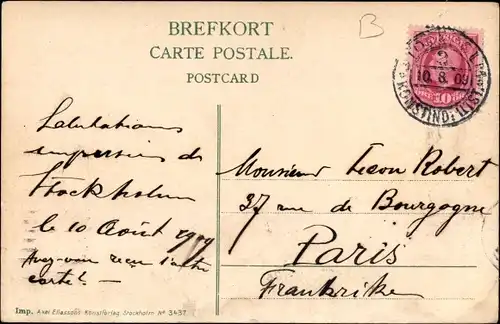 BREFKORT
CARTE POSTALE.
POSTCARD
B
10. 8. 09
KONSTIND:
Salutations
de
Stockholm
le 10 Août 1909
Avez-vous reçu l'autre
carte?
Monsieur Léon Robert
37 rue de Bourgogne
Paris
Frankrike
Imp. Axel Eliassons Konstförlag. Stockholm Nº 3437